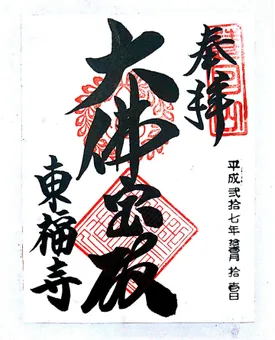 奉拝
平成弐拾七年拾壱月拾壱日
大佛宝殿
東福寺